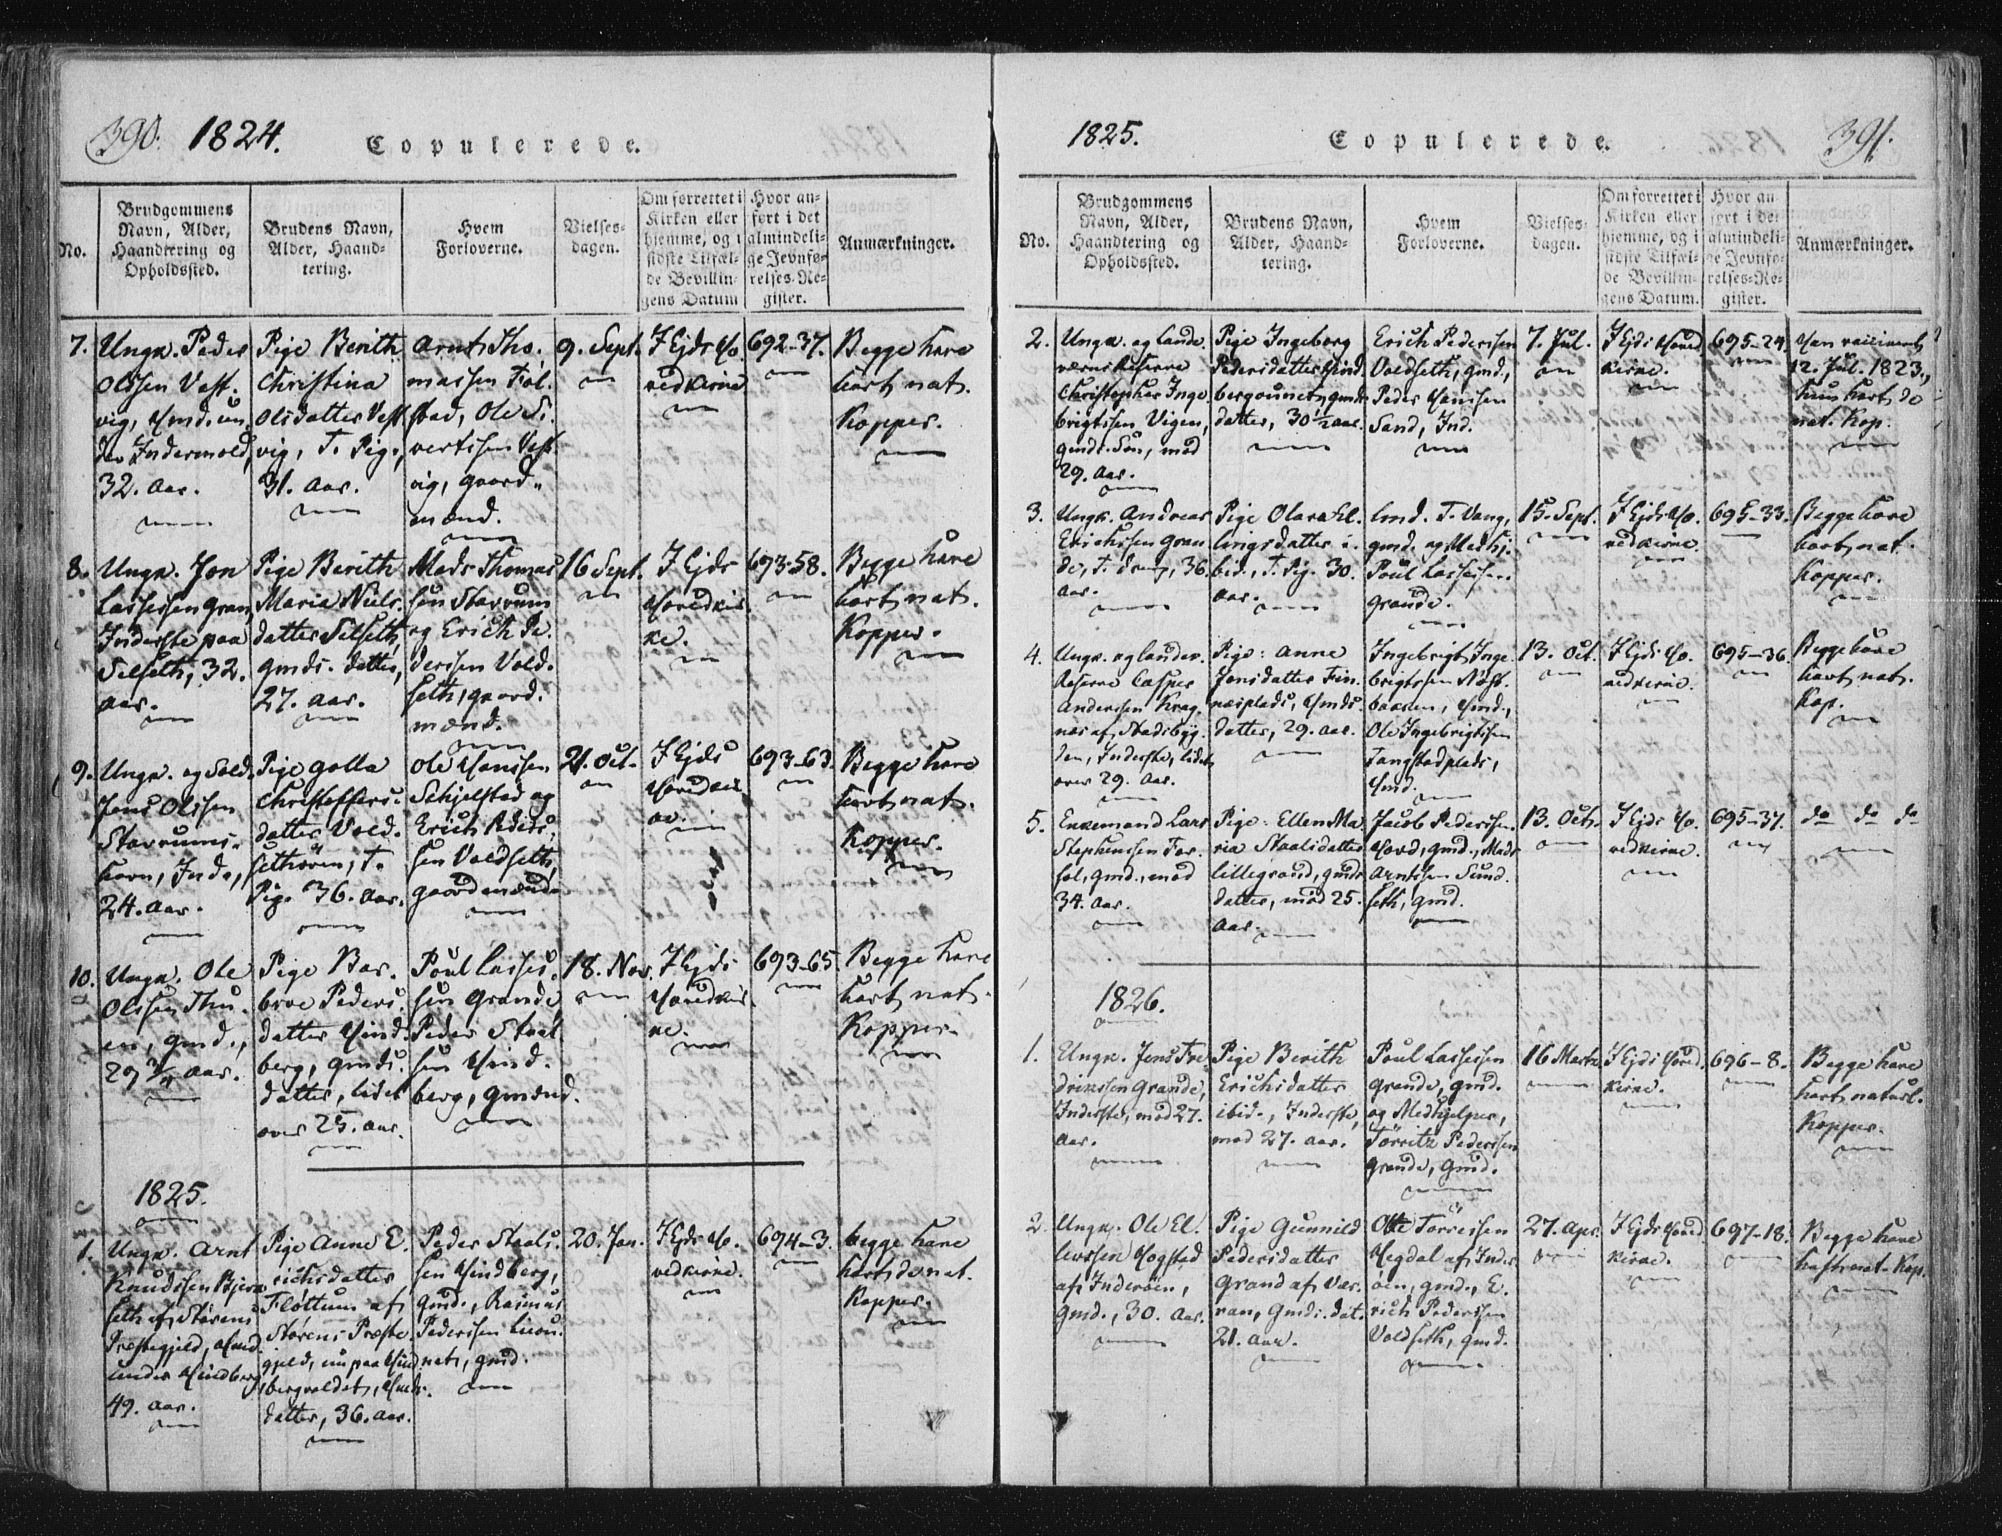 390. 1824. Copulerede.
No.
Brudgommens
Navn, Alder,
Haandtering og
Opholdssted.
Brudens Navn,
Alder, Haand-
tering.
Hvem
Forloverne.
Vielses-
dagen.
Om forrettet i
Kirken eller
hjemme, og i
sidste Tilfæl-
de Bevillin-
gens Datum
Hvor an-
ført i det
almindeli-
ge Jevnfø-
relses-Re-
gister.
Anmærkninger.
7.
Ungk. Peder
Olssen Vest-
vig, Hmd. un
der Indermold,
32. Aar.
Pige Berith
Christina
Olsdatter Vest
vig, T. Pige,
31. Aar.
Arnt Tho-
massen Fiøl-
stad, Ole Si-
vertssen Vest
vig, gaard-
mænd.
9. Sept.
I Ejds Ho-
vedkirke
692-37.
Begge have
havt nat.
Kopper.
8.
Ungk. Jon
Lassessen Gran,
Inderste paa
Selseth, 32.
aar.
Pige Berith
Maria Niels-
datter Selseth,
gmds. datter,
27. aar.
Mads Thomas
sen Stavrum
og Erich Pe-
derssen Vold-
seth, gaard-
mænd.
16 Sept.
I Ejds
Hovedkir-
ke.
693-58.
Begge have
havt nat.
Kopper.
9.
Ungk. og Sold.
Jens Olssen
Stavrums-
havn, Inds.,
24. Aar.
Pige Golla
Christoffers-
datter Vold-
sethøren, T.
Pig. 36. Aar.
Ole Hanssen
Schjelstad og
Erich Peders-
sen Voldseth,
gaardmænd.
21. Oct.
I Ejds
Hovedkir-
ke.
693-63.
Begge have
havt nat.
Kopper.
10.
Ungk. Ole
Olssen Thu-
en, gmd.,
29 3/4 Aar.
Pige Bar-
broe Peders-
datter Hind-
berg, gmds.
datter, lidet
over 25. Aar.
Poul Lasses-
sen Grande
Peder Staal
sen Hind-
berg, gmænd.
18. Nov.
I Ejds
Hovedkir
ke.
693-65.
Begge have
havt nat.
Kopper.
1825.
1.
Ungk. Arnt
Knudssen Bjern
seth af Størens
Præstegjeld, Hmd.
under Hindberg,
49. Aar.
Pige Anne E-
richsdatter
Fløttum af
Størens Præste-
gjeld, nu paa Hind
bergvaldet, Hmds.
datter, 36. Aar.
Peder Staals-
sen Hindberg,
gmd., Rasmus
Pederssen
gmd.
20. Jan.
I Ejds Ho-
vedkirke.
694-3.
begge have
havt de nat.
Kopper.
1825. Copulerede. 391.
No.
Brudgommens
Navn, Alder,
Haandtering og
Opholdssted.
Brudens Navn,
Alder, Haand-
tering.
Hvem
Forloverne.
Vielses-
dagen.
Om forrettet i
Kirken eller
hjemme, og i
sidste Tilfæl-
de Bevillin-
gens Datum.
Hvor an-
ført i det
almindeli-
ge Jevnfø-
relses-Re-
gister.
Anmærkninger.
2.
Ungk. og Lande
værns Reserve
Christopher Inge
brigtssen Vigen,
gmds. Søn, mod
29. Aar.
Pige Ingeborg
Pedersdatter Hind
gmds.
datter, 30 1/2 aar.
Erich Pedersen
Voldseth, gmd.,
Peder Hanssen
Sand, Ind.
7. Jul.
I Ejds Hoved
kirke.
695-24.
Han vaccineret
12. Jul. 1823.,
hun havt de
nat. Kop.
3.
Ungk. Andreas
Erichssen Gran
de, T. Dreng, 36.
Aar.
Pige Olava El-
lingsdatter i-
bid., T. Pig. 30.
Aar.
Lmd. T. Vang,
gmd. og Medhj.
Poul Lassessen
Grande.
15. Sept.
I Ejds Ho-
vedkirke.
695-33.
Begge have
havt nat.
Kopper.
4.
Ungk. og Landev.
Reserve Casper
Anderssen Krag
næs af Stadsbyg-
den, Inderste, lidet
over 29. Aar.
Pige: Anne
Jensdatter Fin-
næsplads, Hmds.
datter, 29. aar.
Ingebrigt Inge-
brigtssen Nøst-
baaren, Hmd.,
Ole Ingebrigtssen
Fangstadplads,
Hmd.
13. Oct.
I Ejds Ho-
vedkirke.
695-36.
Begge have
havt nat.
Kop.
5.
Enkemand Lars
Stephenssen For-
sol, gmd., mod
34. Aar.
Pige: Ellen Ma
ria Staalsdatter
Lillegrand, gmds.
datter, mod 25.
Aar.
Jacob Pederssen
Hovd, gmd., Mads
Arntssen Sund-
seth, gmd.
13. Oct.
I Ejds Ho-
vedkirke.
695-37.
do do do
1826.
1.
Ungk. Jens Fre
drikssen Grande,
Inderste, mod 27.
Aar.
Pige Berith
Erichsdatter
ibid., Inderste,
mod 27. Aar.
Poul Lassessen
Grande, gmd.
og Medhjelper,
Tørritz Pederssen
Grande, gmd.
16 Marts
I Ejds Hoved
kirke.
696-8.
Begge have
havt naturl.
Kopper.
2.
Ungk. Ole El-
levssen Hogstad
af Inderøen,
gmd., 30. Aar.
Pige Gunnild
Pedersdatter
Grand af Vær-
ran, Gmds. dat.
21. Aar.
Ole Tørressen
Hegdal af Inder
øen, gmd., E-
rich Pederssen
Voldseth, gmd.
27. Apr.
I Ejds Hoved
kirke.
697-18.
Begge have
havt nat. Kop.